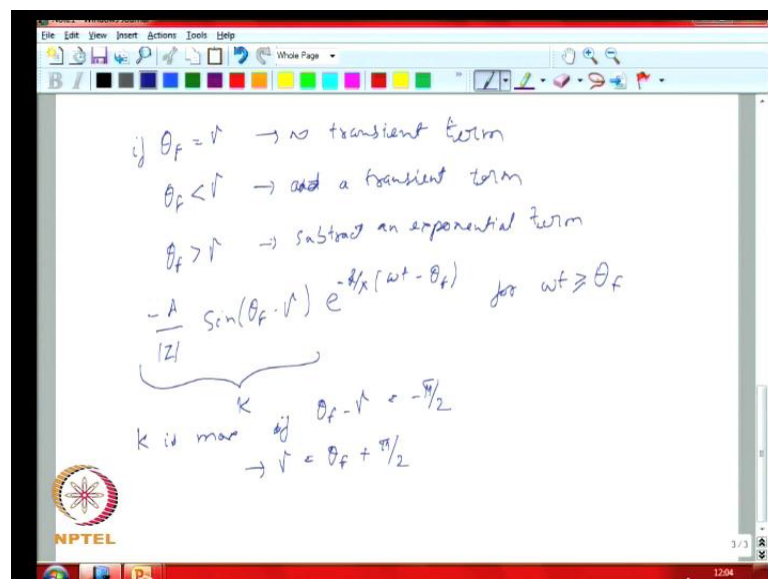 File Edit View Insert Actions Tools Help
Whole Page
B I
if θf = γ → no transient term
θf < γ → add a transient term
θf > γ → subtract an exponential term
-A/|Z| sin(θf - γ) e^{-R/X (ωt - θf)} for ωt ≥ θf
K
K is max if θf - γ = -π/2
→ γ = θf + π/2
NPTEL
3 / 3
12:04